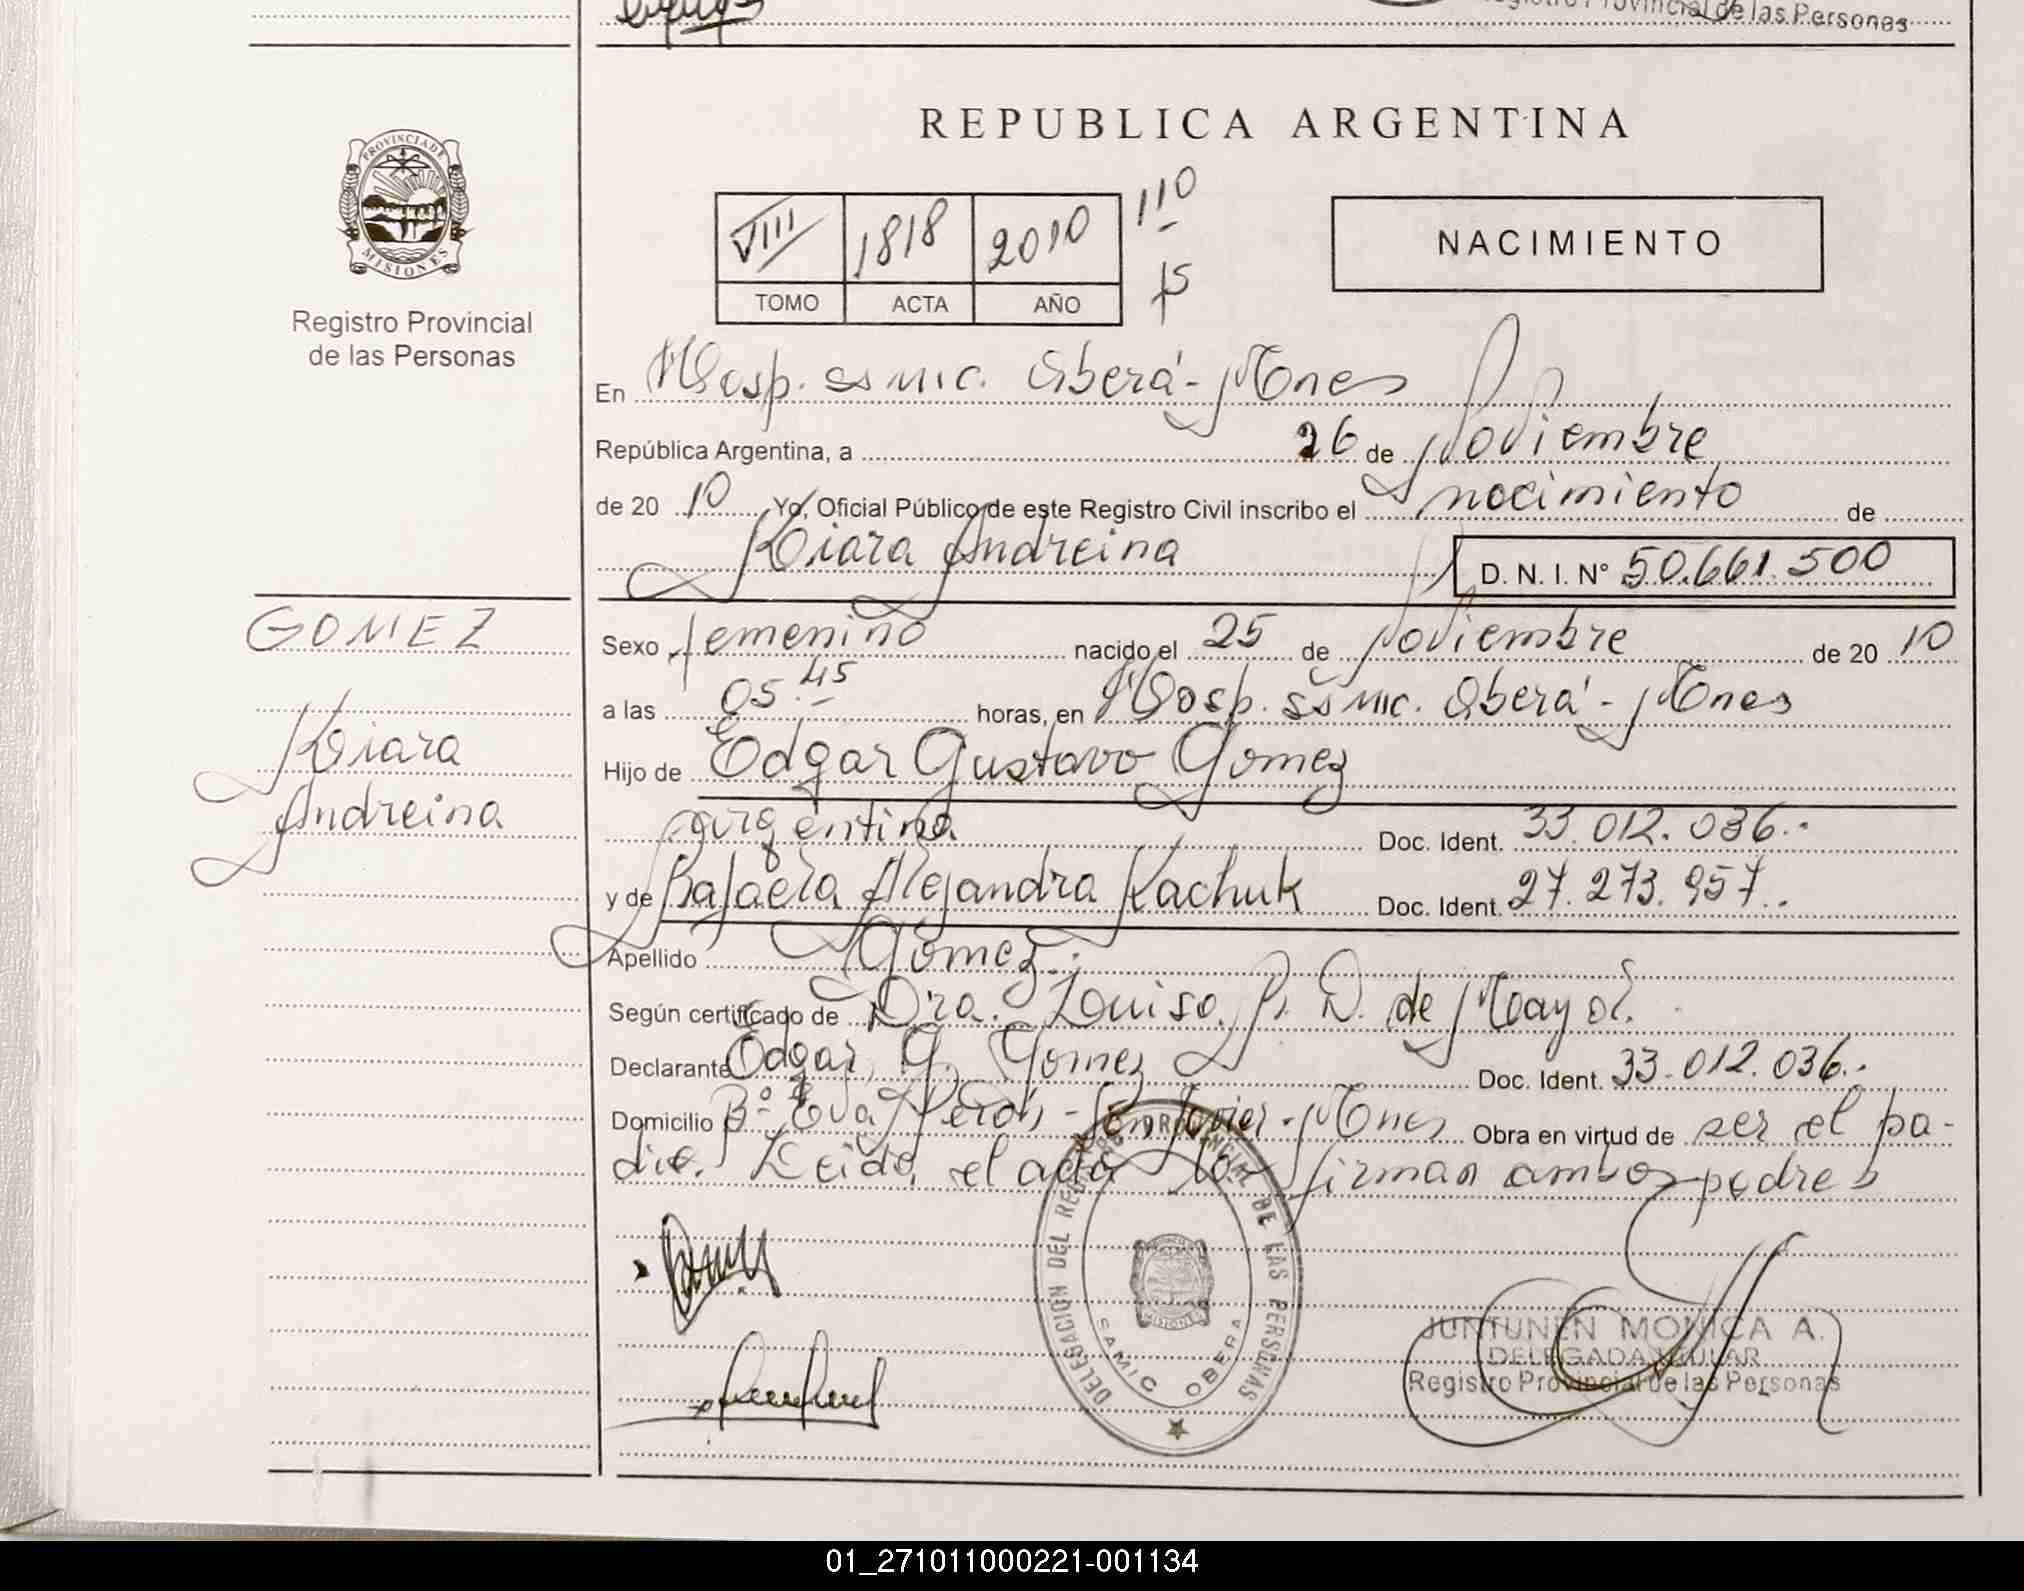 Registro Provincial de las Personas
REPUBLICA ARGENTINA
PROVINCIA DE MISIONES
Registro Provincial
de las Personas
VIII 1818 2010 110
TOMO ACTA AÑO 15
NACIMIENTO
En Hosp. ss mic. Oberá - Mnes
República Argentina, a 26 de Noviembre
de 20 10 Yo, Oficial Público de este Registro Civil inscribo el nacimiento de
Kiara Andreina D. N. I. N° 50.661.500
GOMEZ
Kiara
Andreina
Sexo femenino nacido el 25 de noviembre de 20 10
a las 05 45 horas, en Hosp. ss mic. Oberá - Mnes
Hijo de Edgar Gustavo Gomez
argentina Doc. Ident. 33.012.036..
y de Rafaela Alejandra Kachuk Doc. Ident. 27.273.957..
Apellido Gomez.
Según certificado de Dra. Luisa P. D. de Mayol.
Declarante Edgar G. Gomez Doc. Ident. 33.012.036..
Domicilio B° Eva Perón - San Javier - Mnes Obra en virtud de ser el pa-
dre. Leída el acta la firman ambos padres
DELEGACION DEL REGISTRO PROVINCIAL DE LAS PERSONAS
MISIONES
SAMIC OBERA
JUNTUNEN MONICA A.
DELEGADA TITULAR
Registro Provincial de las Personas
01_271011000221-001134